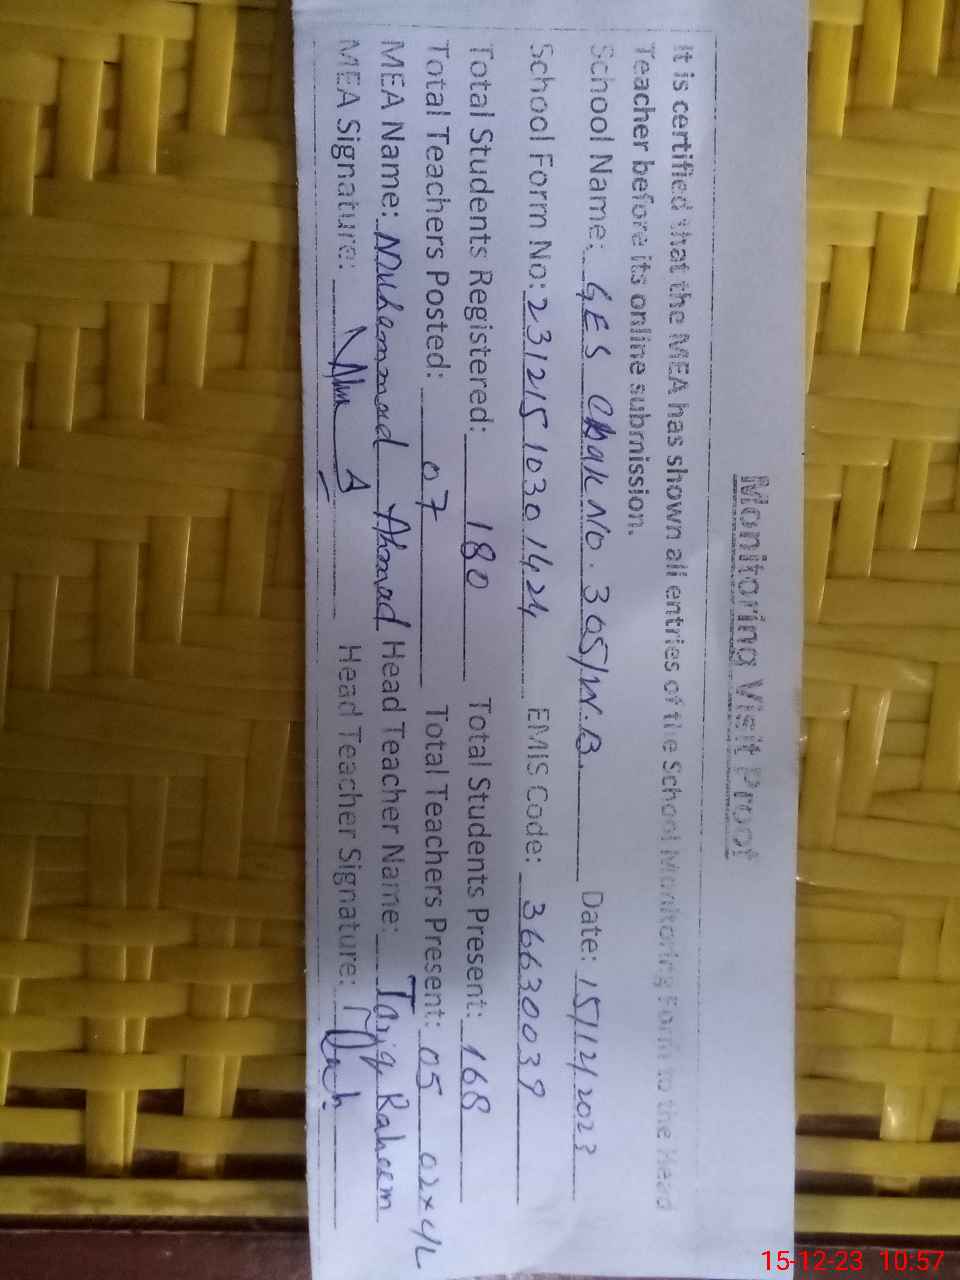 Monitoring Visit Proof
It is certified that the MEA has shown all entries of the School Monitoring Form to the Head
Teacher before its online submission.
School Name: GES Chak No. 305/W.B. Date: 15/12/2023
School Form No: 23121510301424 EMIS Code: 36630039
Total Students Registered: 180 Total Students Present: 168
Total Teachers Posted: 07 Total Teachers Present: 05 02×4L
MEA Name: Muhammad Ahmad Head Teacher Name: Tariq Raheem
MEA Signature: Head Teacher Signature:
15-12-23 10:57